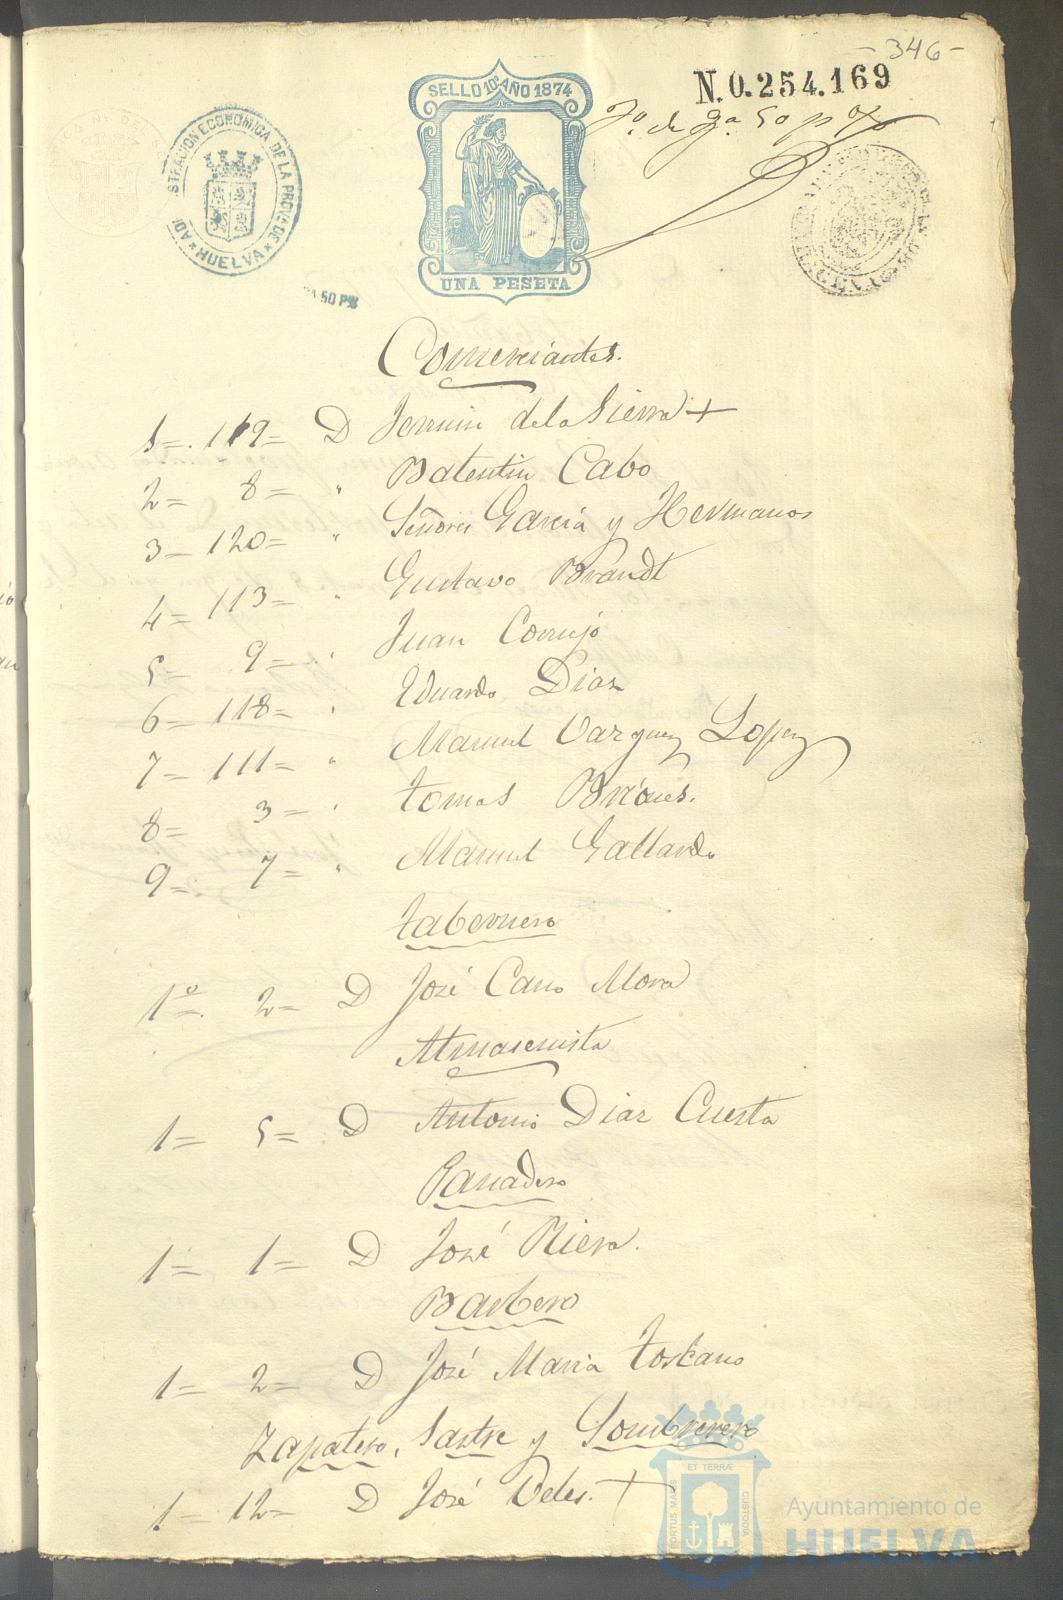 - 346 -
N.0.254.169
SELLO 10º AÑO 1874
UNA PESETA
ADMINISTRACION ECONOMICA DE LA PROV. DE HUELVA
50 P
Comerciantes.
1 = 119 = D Fermin de la Sierra +
2 = 8 = " Balentin Cabo
3 = 120 = " Señores Garcia y Hermanos
4 = 113 = " Gustavo Brandt
5 = 9 = " Juan Cornejo
6 = 118 = " Eduardo Dias
7 = 111 = " Manuel Vazquez Lopez
8 = 3 = " tomas Briones.
9 = 7 = " Manuel Gallardo
tabernero
1º = 2 = D José Cano Mora
Almasenista
1 = 5 = D Antonio Diaz Cuesta
Panadero
1 = 1 = D José Riera.
Barbero
1 = 2 = D José Maria toscano
Zapatero, Sastre y Sombrerero
1 = 12 = D José Veles. +
PORTUS MARIS ET TERRÆ CUSTODIA
Ayuntamiento de
HUELVA